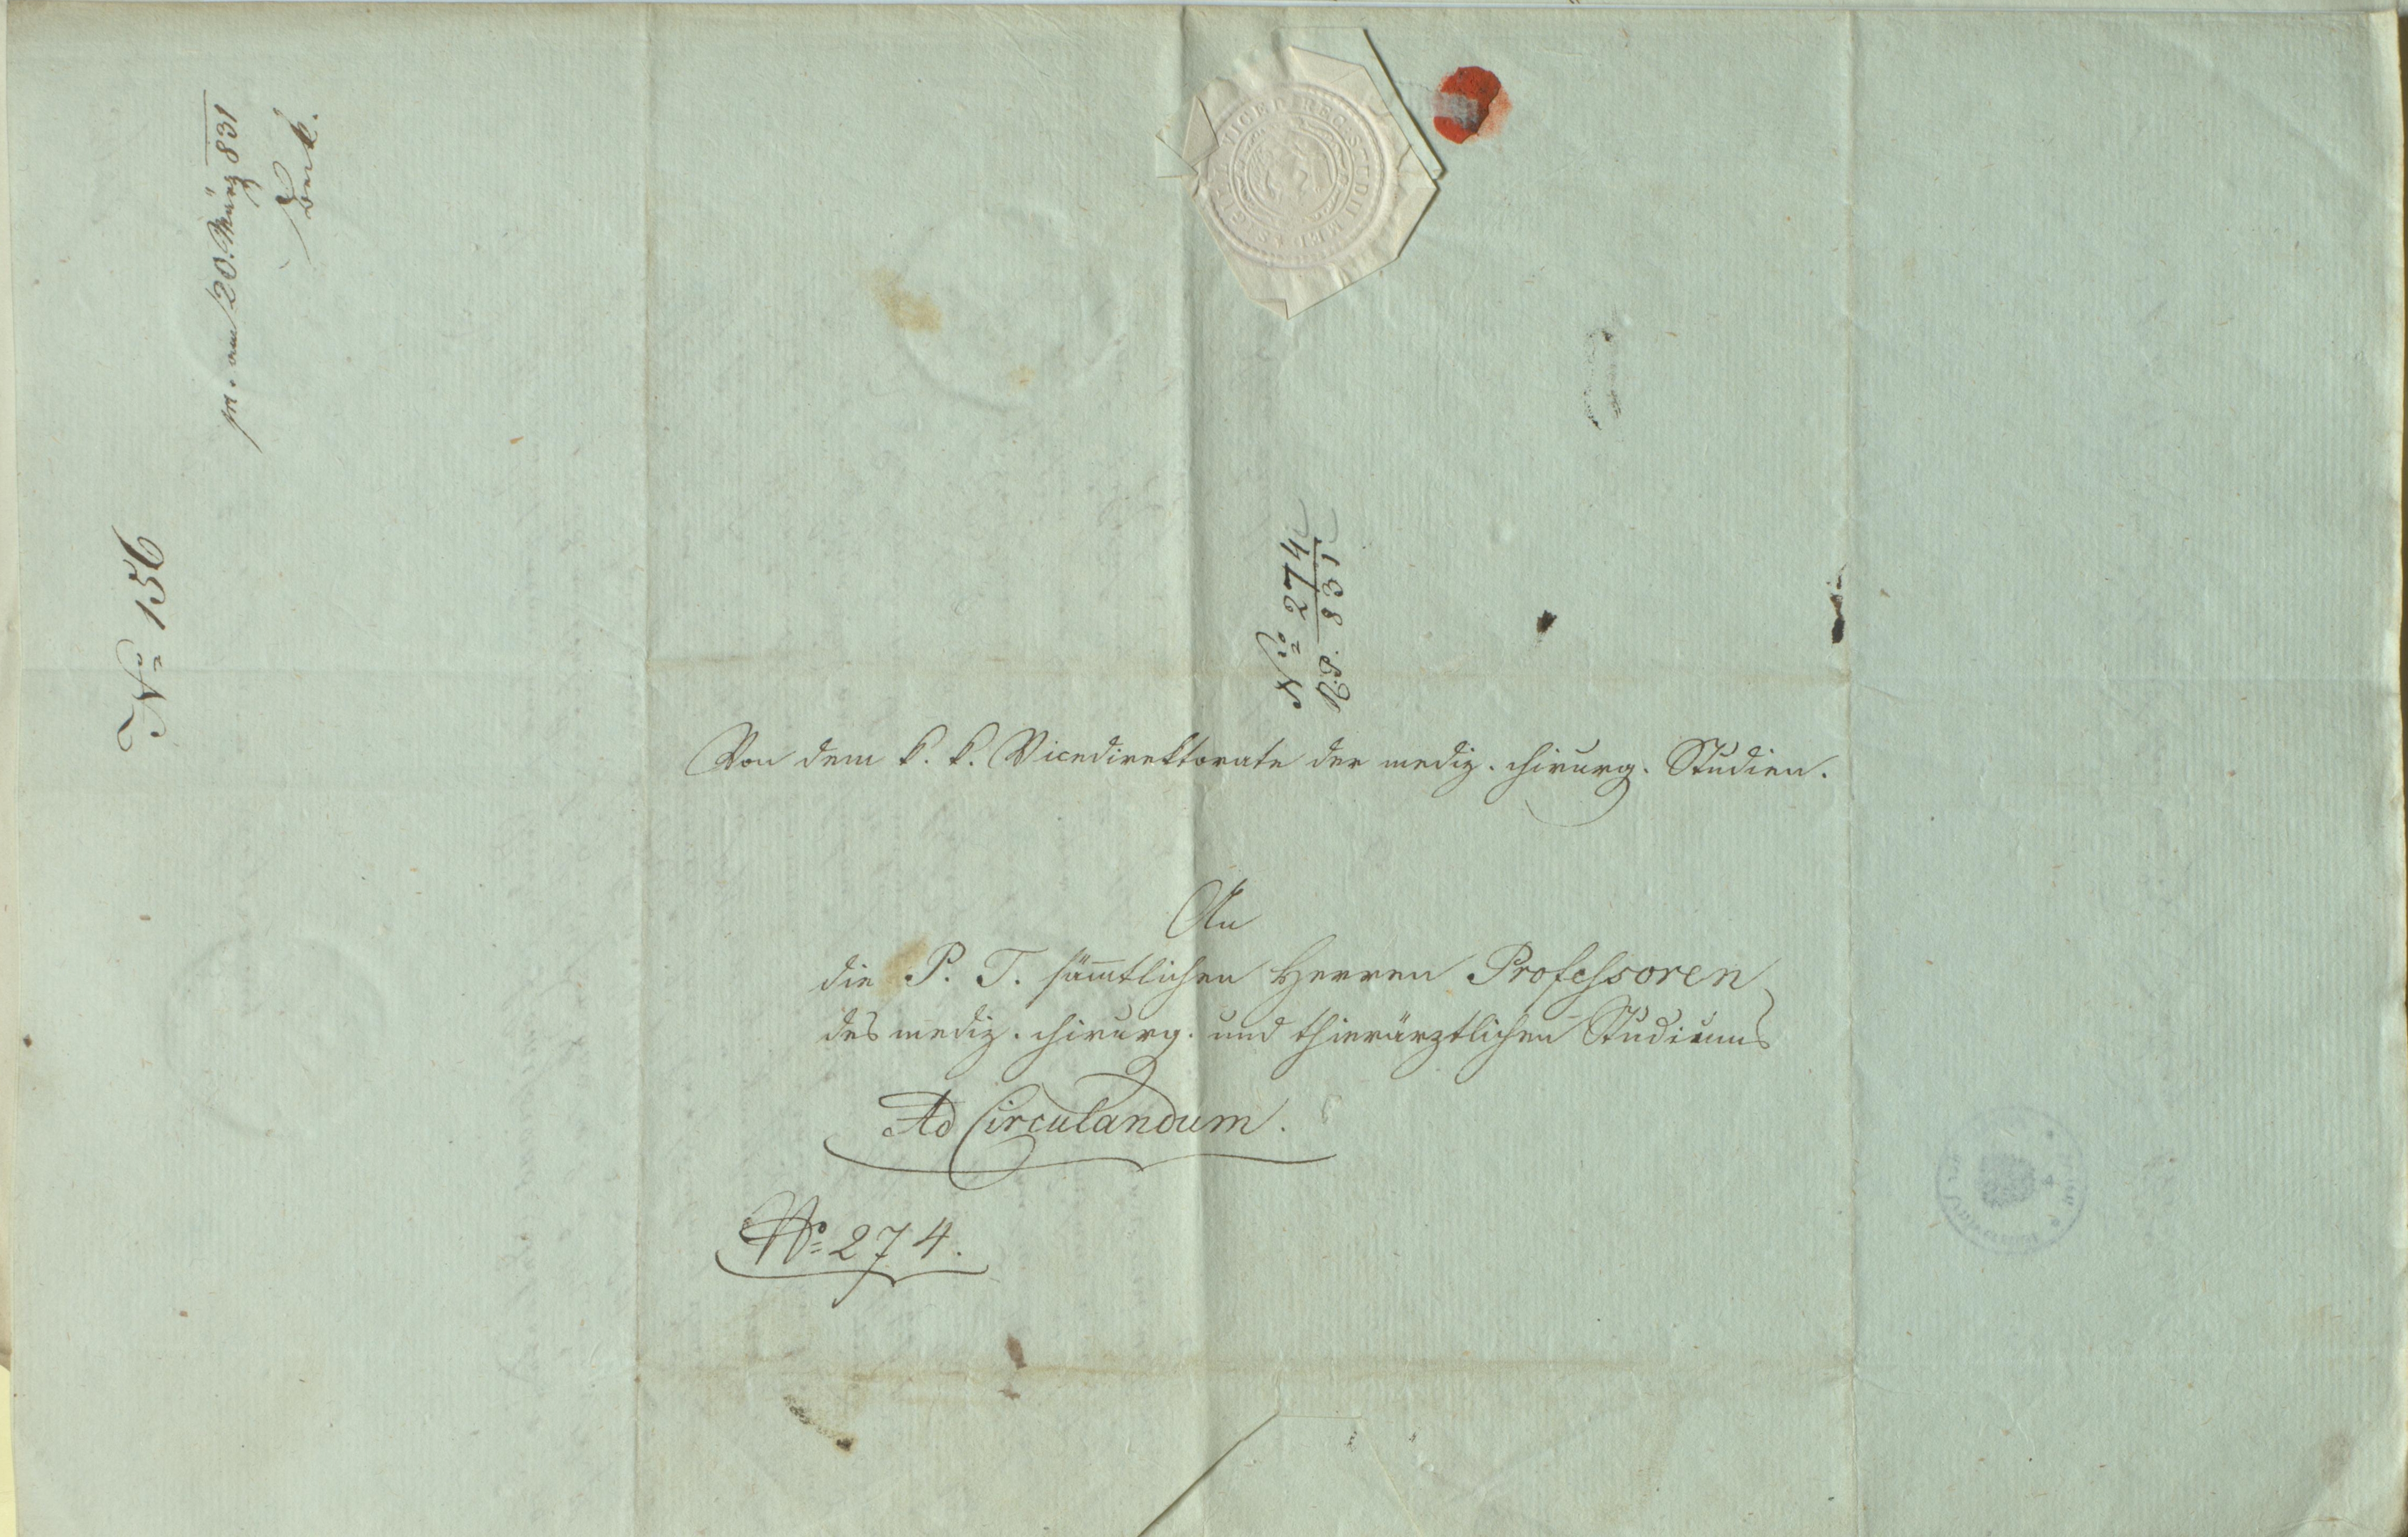 pr. am 20. März 831
Beck.
No 156
No 274
831
Von dem k. k. Vicedirektorate der mediz. chirurg. Studien.
An
die P. T. sämmtlichen Herren Professoren
des mediz. chirurg. und thierärztlichen Studiums
Ad Circulandum.
No 274.